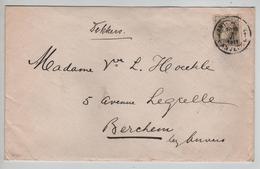 Dokkers.
Madame Vve L. Hoeckle
5 Avenue Legrelle
Berchem
lez Anvers